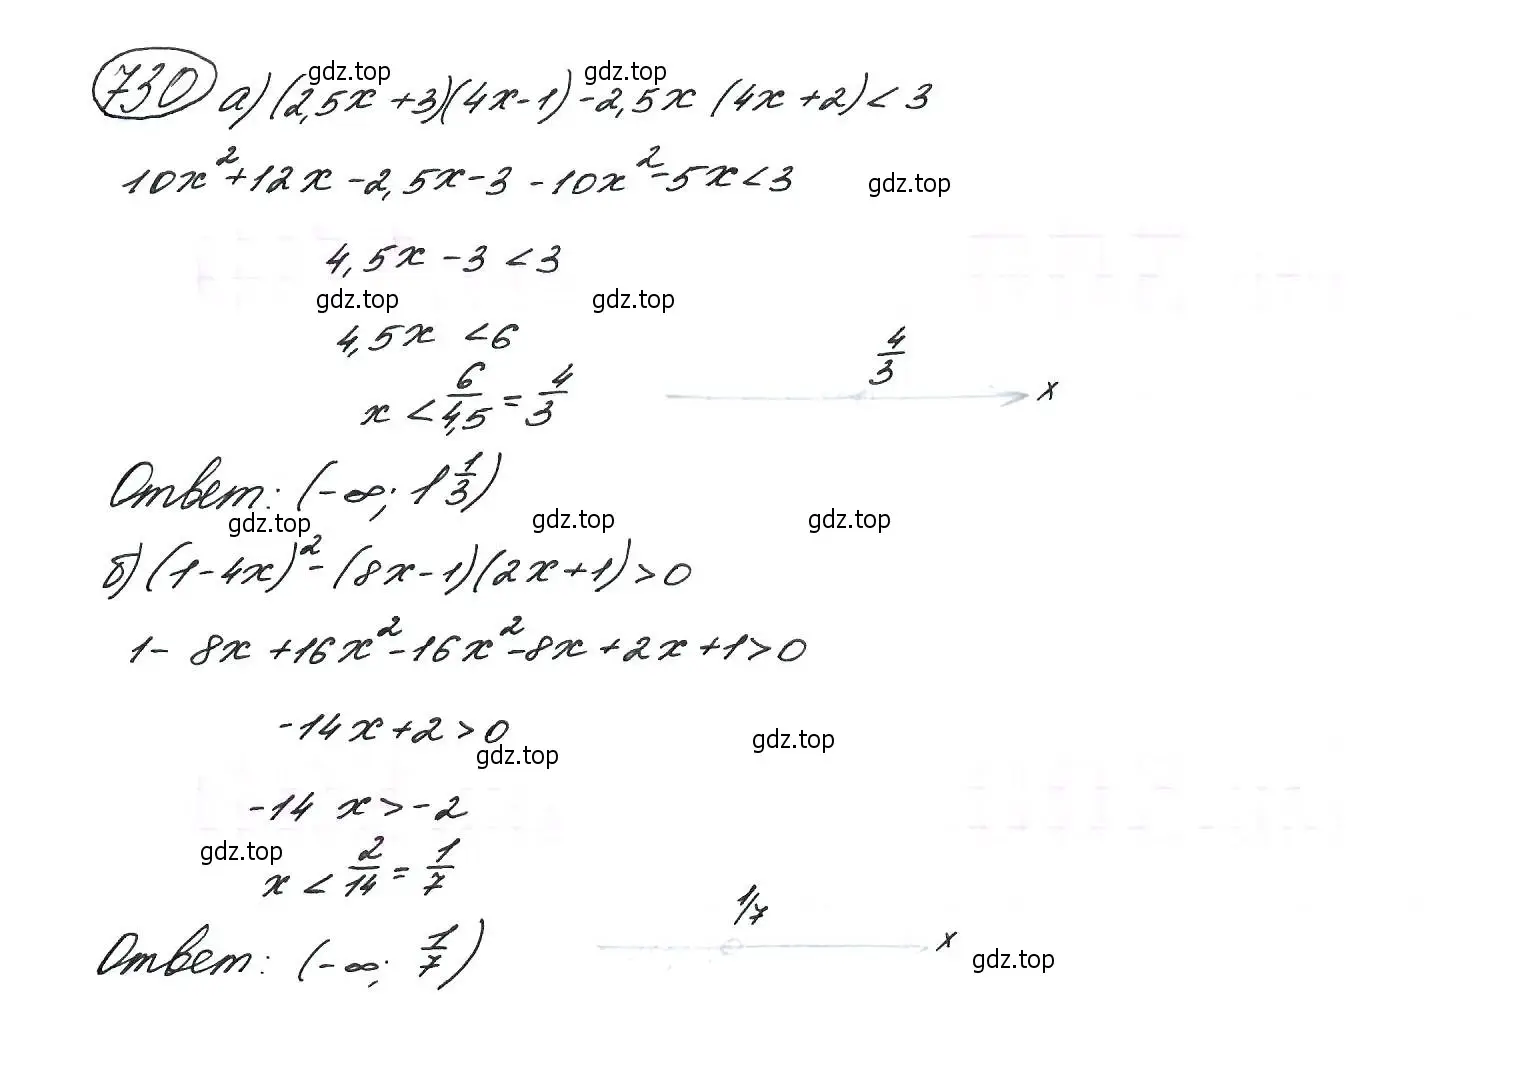 730 а) (2,5x + 3)(4x - 1) - 2,5x (4x + 2) < 3
gdz.top gdz.top
10x² + 12x - 2,5x - 3 - 10x² - 5x < 3
gdz.top
4,5x - 3 < 3
gdz.top gdz.top
4,5x < 6
x < 6/4,5 = 4/3
4/3 x
Ответ: (-∞; 1 1/3)
gdz.top gdz.top gdz.top
б) (1 - 4x)² - (8x - 1)(2x + 1) > 0
1 - 8x + 16x² - 16x² - 8x + 2x + 1 > 0
-14x + 2 > 0
gdz.top gdz.top
-14 x > -2
gdz.top
x < 2/14 = 1/7
1/7 x
Ответ: (-∞; 1/7)
gdz.top